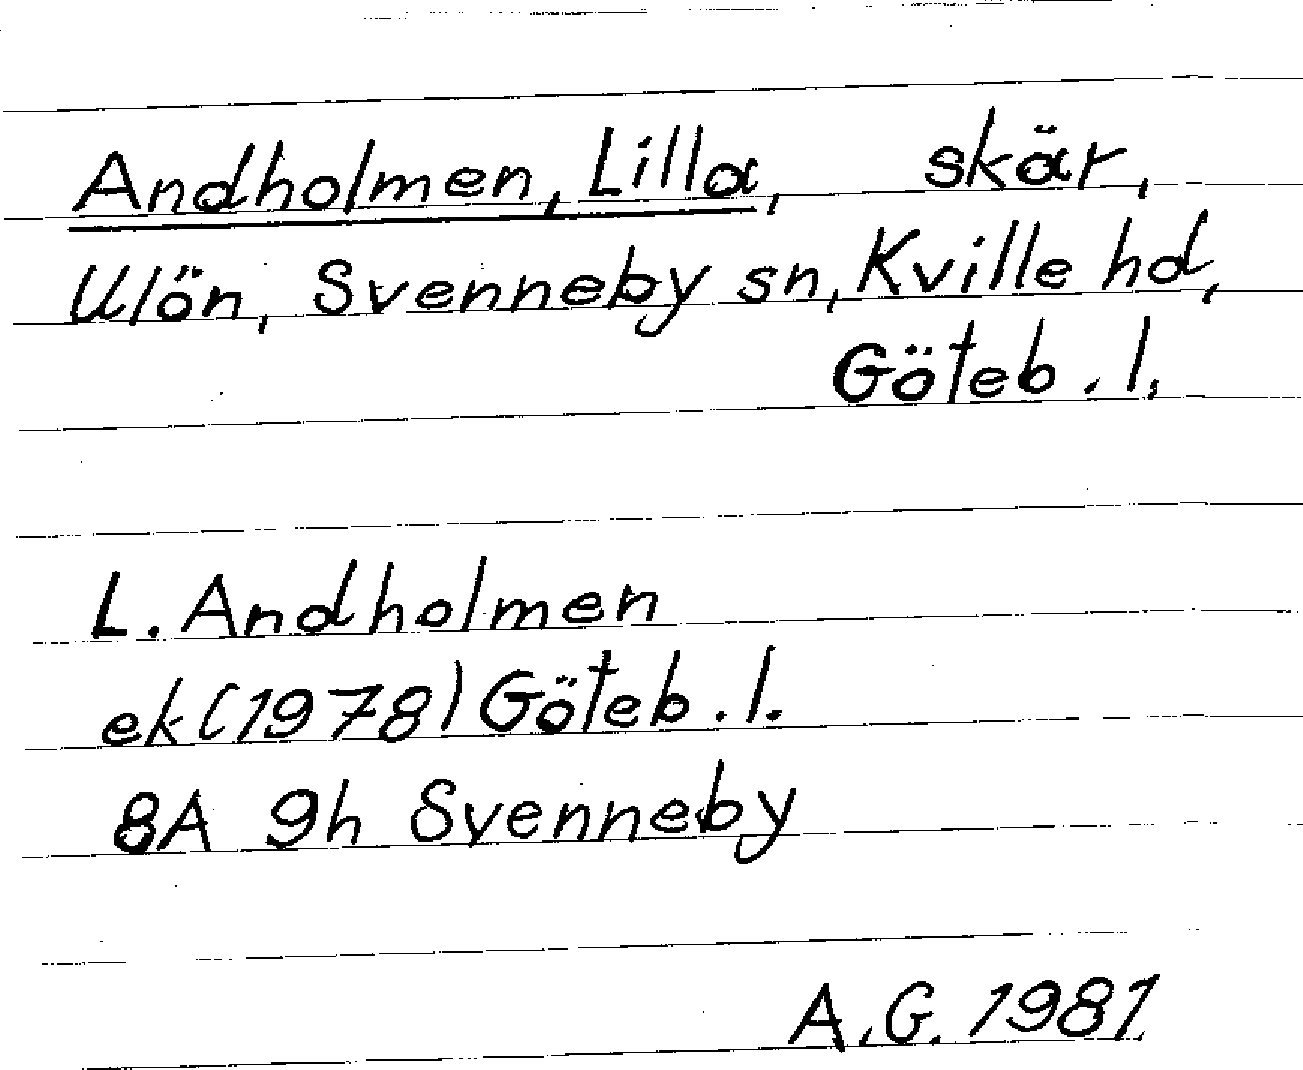 Andholmen, Lilla, skär,
Ulön, Svenneby sn, Kville hd,
Göteb. l.
L. Andholmen
ek (1978) Göteb. l.
8A 9h Svenneby
A.G. 1981.